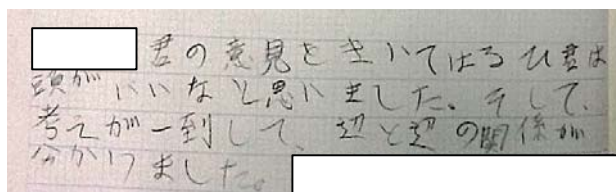 君の意見をきいてはるひ君は
頭がいいなと思いました。そして、
考えが一到して、辺と辺の関係が
分かりました。